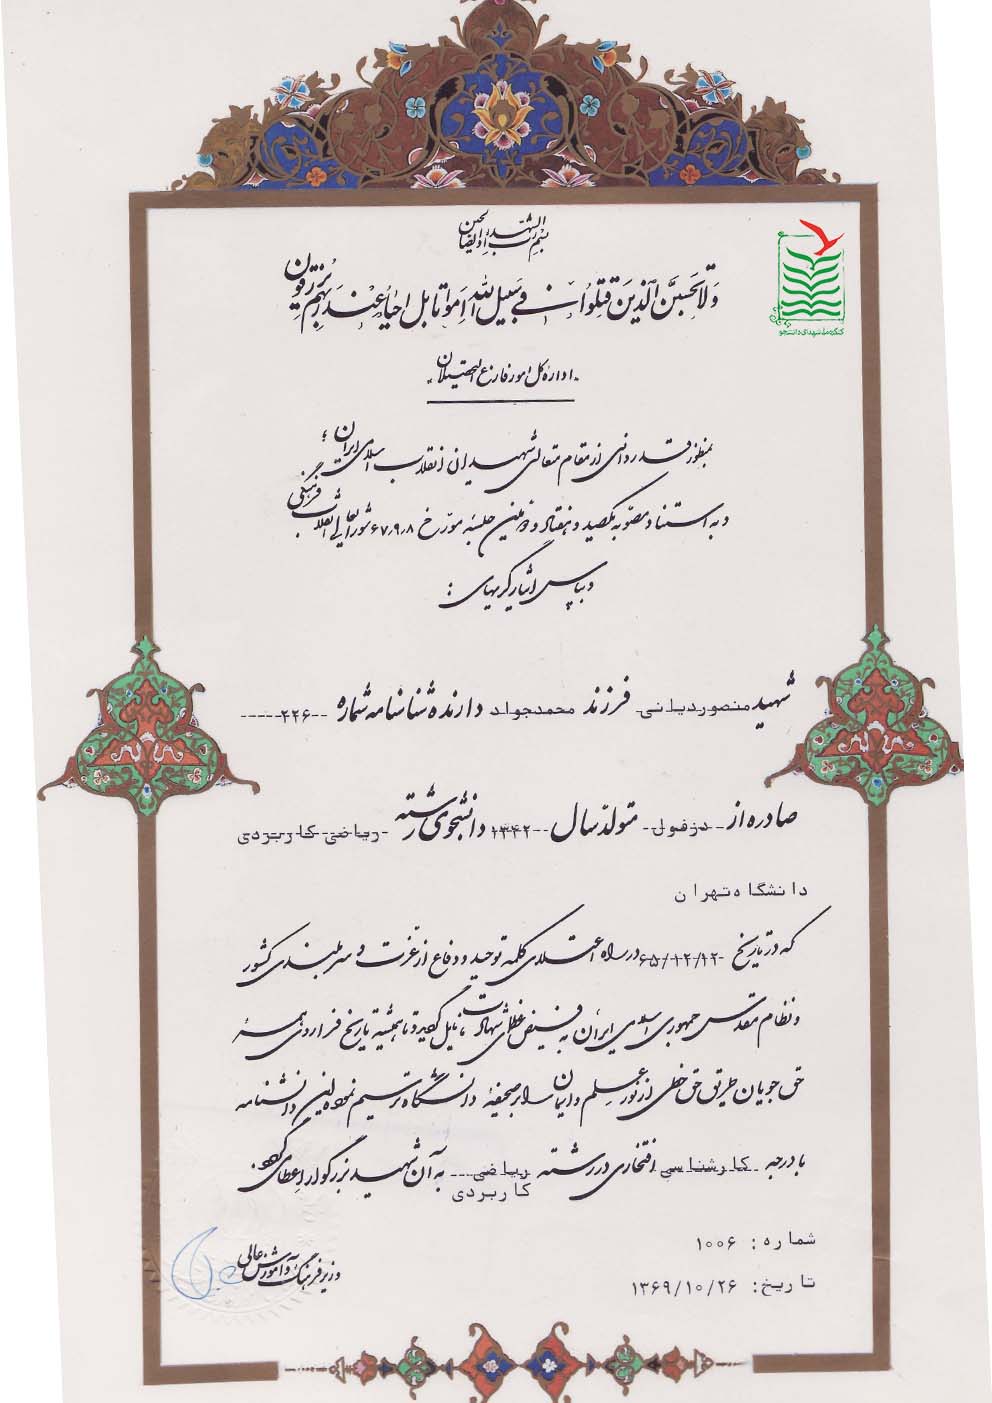 بسم رب الشهداء و الصدیقین
ولا تحسبن الذین قتلوا فی سبیل الله امواتا بل احیاء عند ربهم یرزقون
کنگره ملی شهدای دانشجو
«اداره کل امور فارغ التحصیلان»
بمنظور قدردانی از مقام متعالی شهیدان انقلاب اسلامی ایران؛
و به استناد مصوبه یکصد و هفتاد و دومین جلسه مورخ ۶۷٫۹٫۸ شورایعالی انقلاب فرهنگی
و بپاس ایثارگریهای:
شهید منصوردیانی فرزند محمدجواد دارنده شناسنامه شماره --۲۲۶-----
صادره از -دزفول- متولد سال --۱۳۴۲ دانشجوی رشته -ریاضی کاربردی
دانشگاه تهران
که در تاریخ ۶۵/۱۲/۱۲- در راه اعتلای کلمه توحید و دفاع از عزت و سربلندی کشور
و نظام مقدس جمهوری اسلامی ایران به فیض عظمای شهادت نایل گردید و تا همیشه تاریخ فراروی همه
حق جویان طریق حق خطی از نور علم و ایمان را بر صحیفه دانشگاه ترسیم نموده این دانشنامه
با درجه -کارشناسی افتخاری در رشته ریاضی--- به آن شهید بزرگوار اعطا می گردد.
کاربردی
شماره: ۱۰۰۶
تاریخ: ۱۳۶۹/۱۰/۲۶
وزیر فرهنگ و آموزش عالی